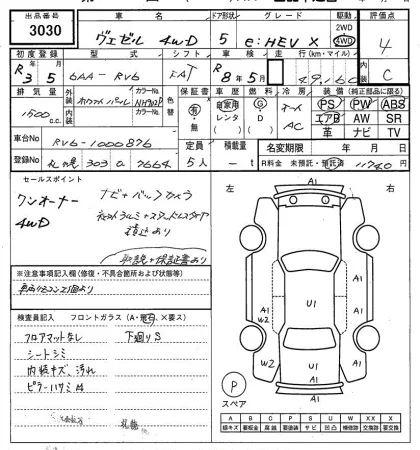 出品番号 車名 ドア形状 グレード 駆動 評価点
3030 ヴェゼル 4WD 5 e:HEV X 2WD 4WD 4
初度登録 型式 シフト 車検 走行(km・マイル) 内装
R3 5 6AA-RV6 FAT R8年5月 49,160 C
排気量 外装 カラーNo. 色替 保証書 車歴 燃料 冷房 装備(純正部品に限る)
1500 c.c. 内装 カラーNo. 有・無 自家用 レンタ G・D オート AC PS PW ABS
エアB AW SR
革 ナビ TV
車台No RV6-1000876 定員 積載量 名変期限 年 月 日
登録No 札幌 303 7664 5人 t R料金 未預託・預託済 11740円
セールスポイント
ワンオーナー ナビ・バックカメラ
4WD
取説・保証書あり
※注意事項記入欄(修復・不具合箇所および状態等)
検査員記入 フロントガラス(A・飛石、×要ス)
フロアマットなし 下廻りS
シートシミ
内装キズ、汚れ
ピラーハリA
左 右
A1
A1
A1
A1
W2
U1
A1
A1
W2
U1
A1
P
スペア
A B C P S U W XX X
線キズ 要鈑金 腐蝕 要塗装 サビ 凹凸 補修跡 交換跡 要交換